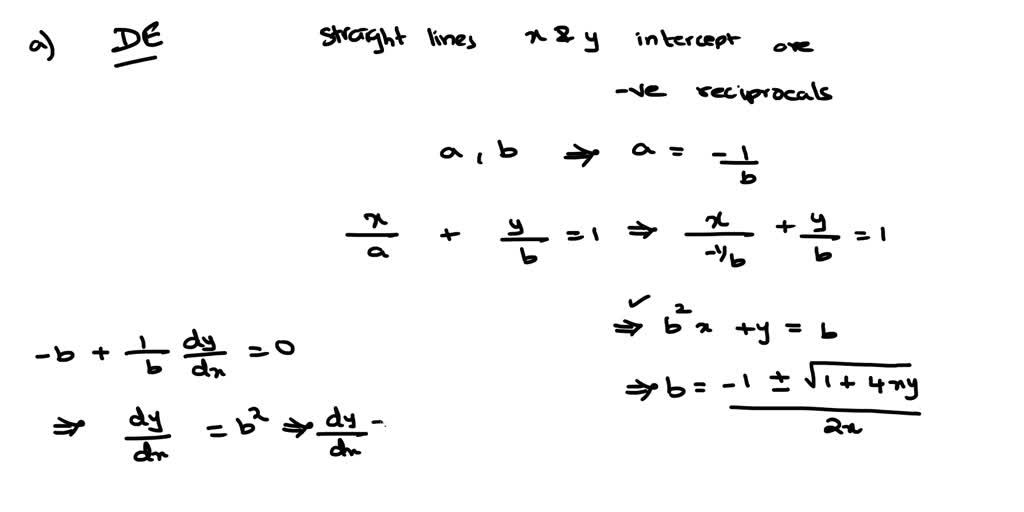 a) DE straight lines x & y intercept are
-ve reciprocals
a, b ⇒ a = -1/b
x/a + y/b = 1 ⇒ x/(-1/b) + y/b = 1
✓
⇒ b²x + y = b
-b + 1/b dy/dx = 0
⇒ b = (-1 ± √(1 + 4xy))/2x
⇒ dy/dx = b² ⇒ dy/dx -